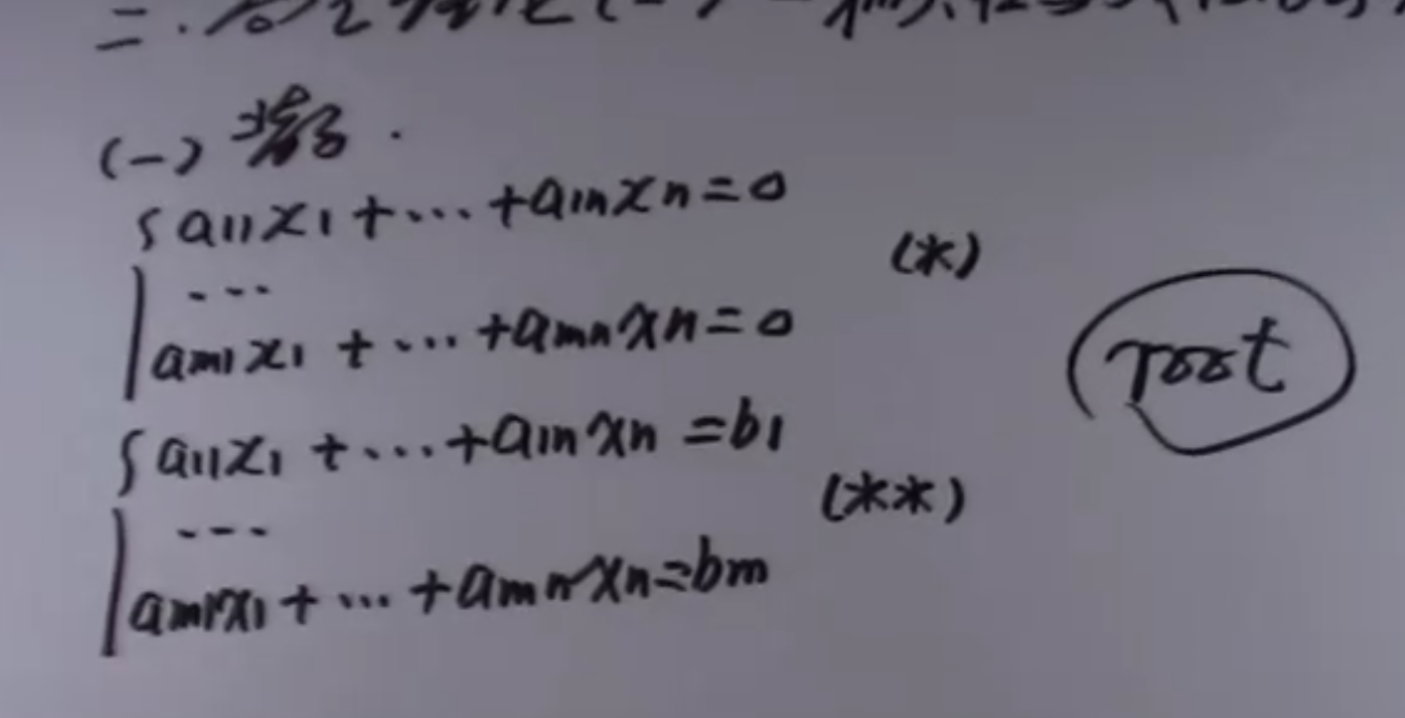 二.
(一)
{a11x1+...+a1nxn=0
...
am1x1+...+amnxn=0
(*)
{a11x1+...+a1nxn=b1
...
am1x1+...+amnxn=bm
(**)
root